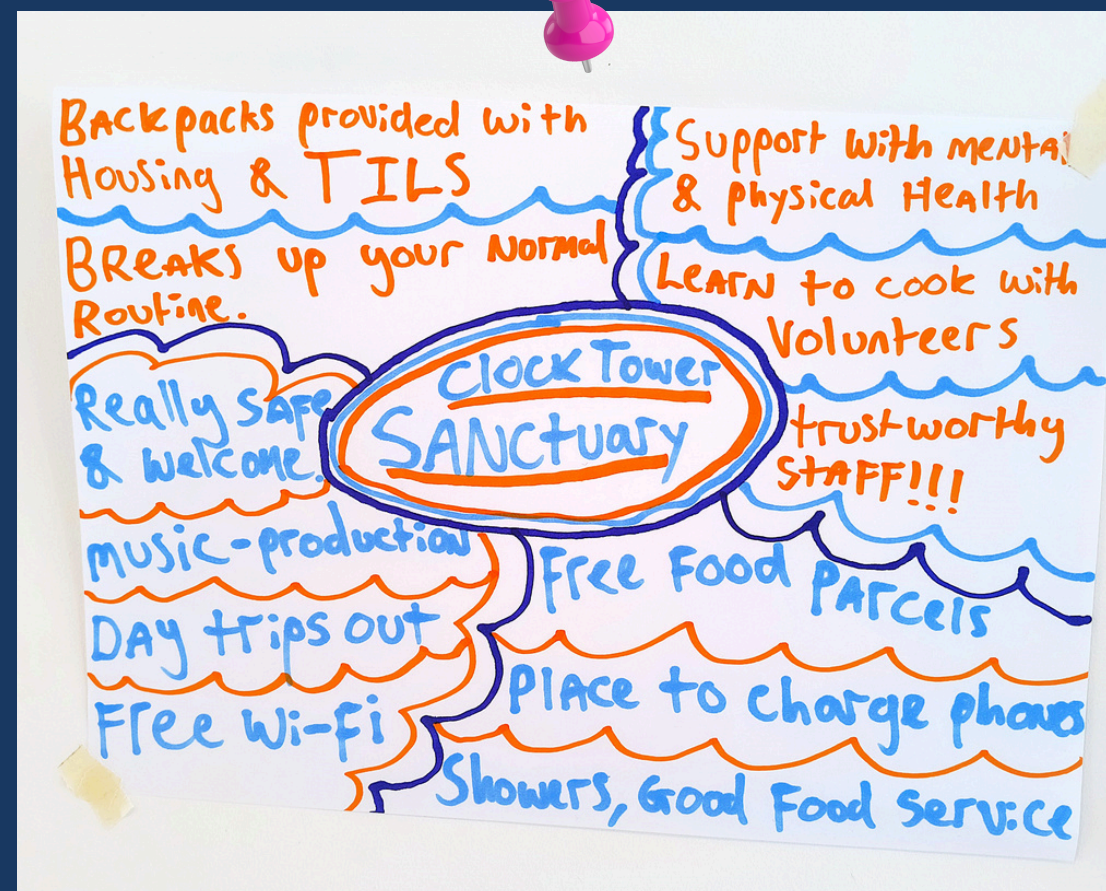 Backpacks provided with
Housing & TILS
Breaks up your Normal
Routine.
Really SAFE
& welcome.
music-production
DAY trips out
Free Wi-Fi
Clock Tower
SANCtuary
Support with mental
& physical Health
Learn to cook with
Volunteers
trustworthy
STAFF!!!
Free Food PArcels
PlAce to charge phones
Showers, Good Food Service